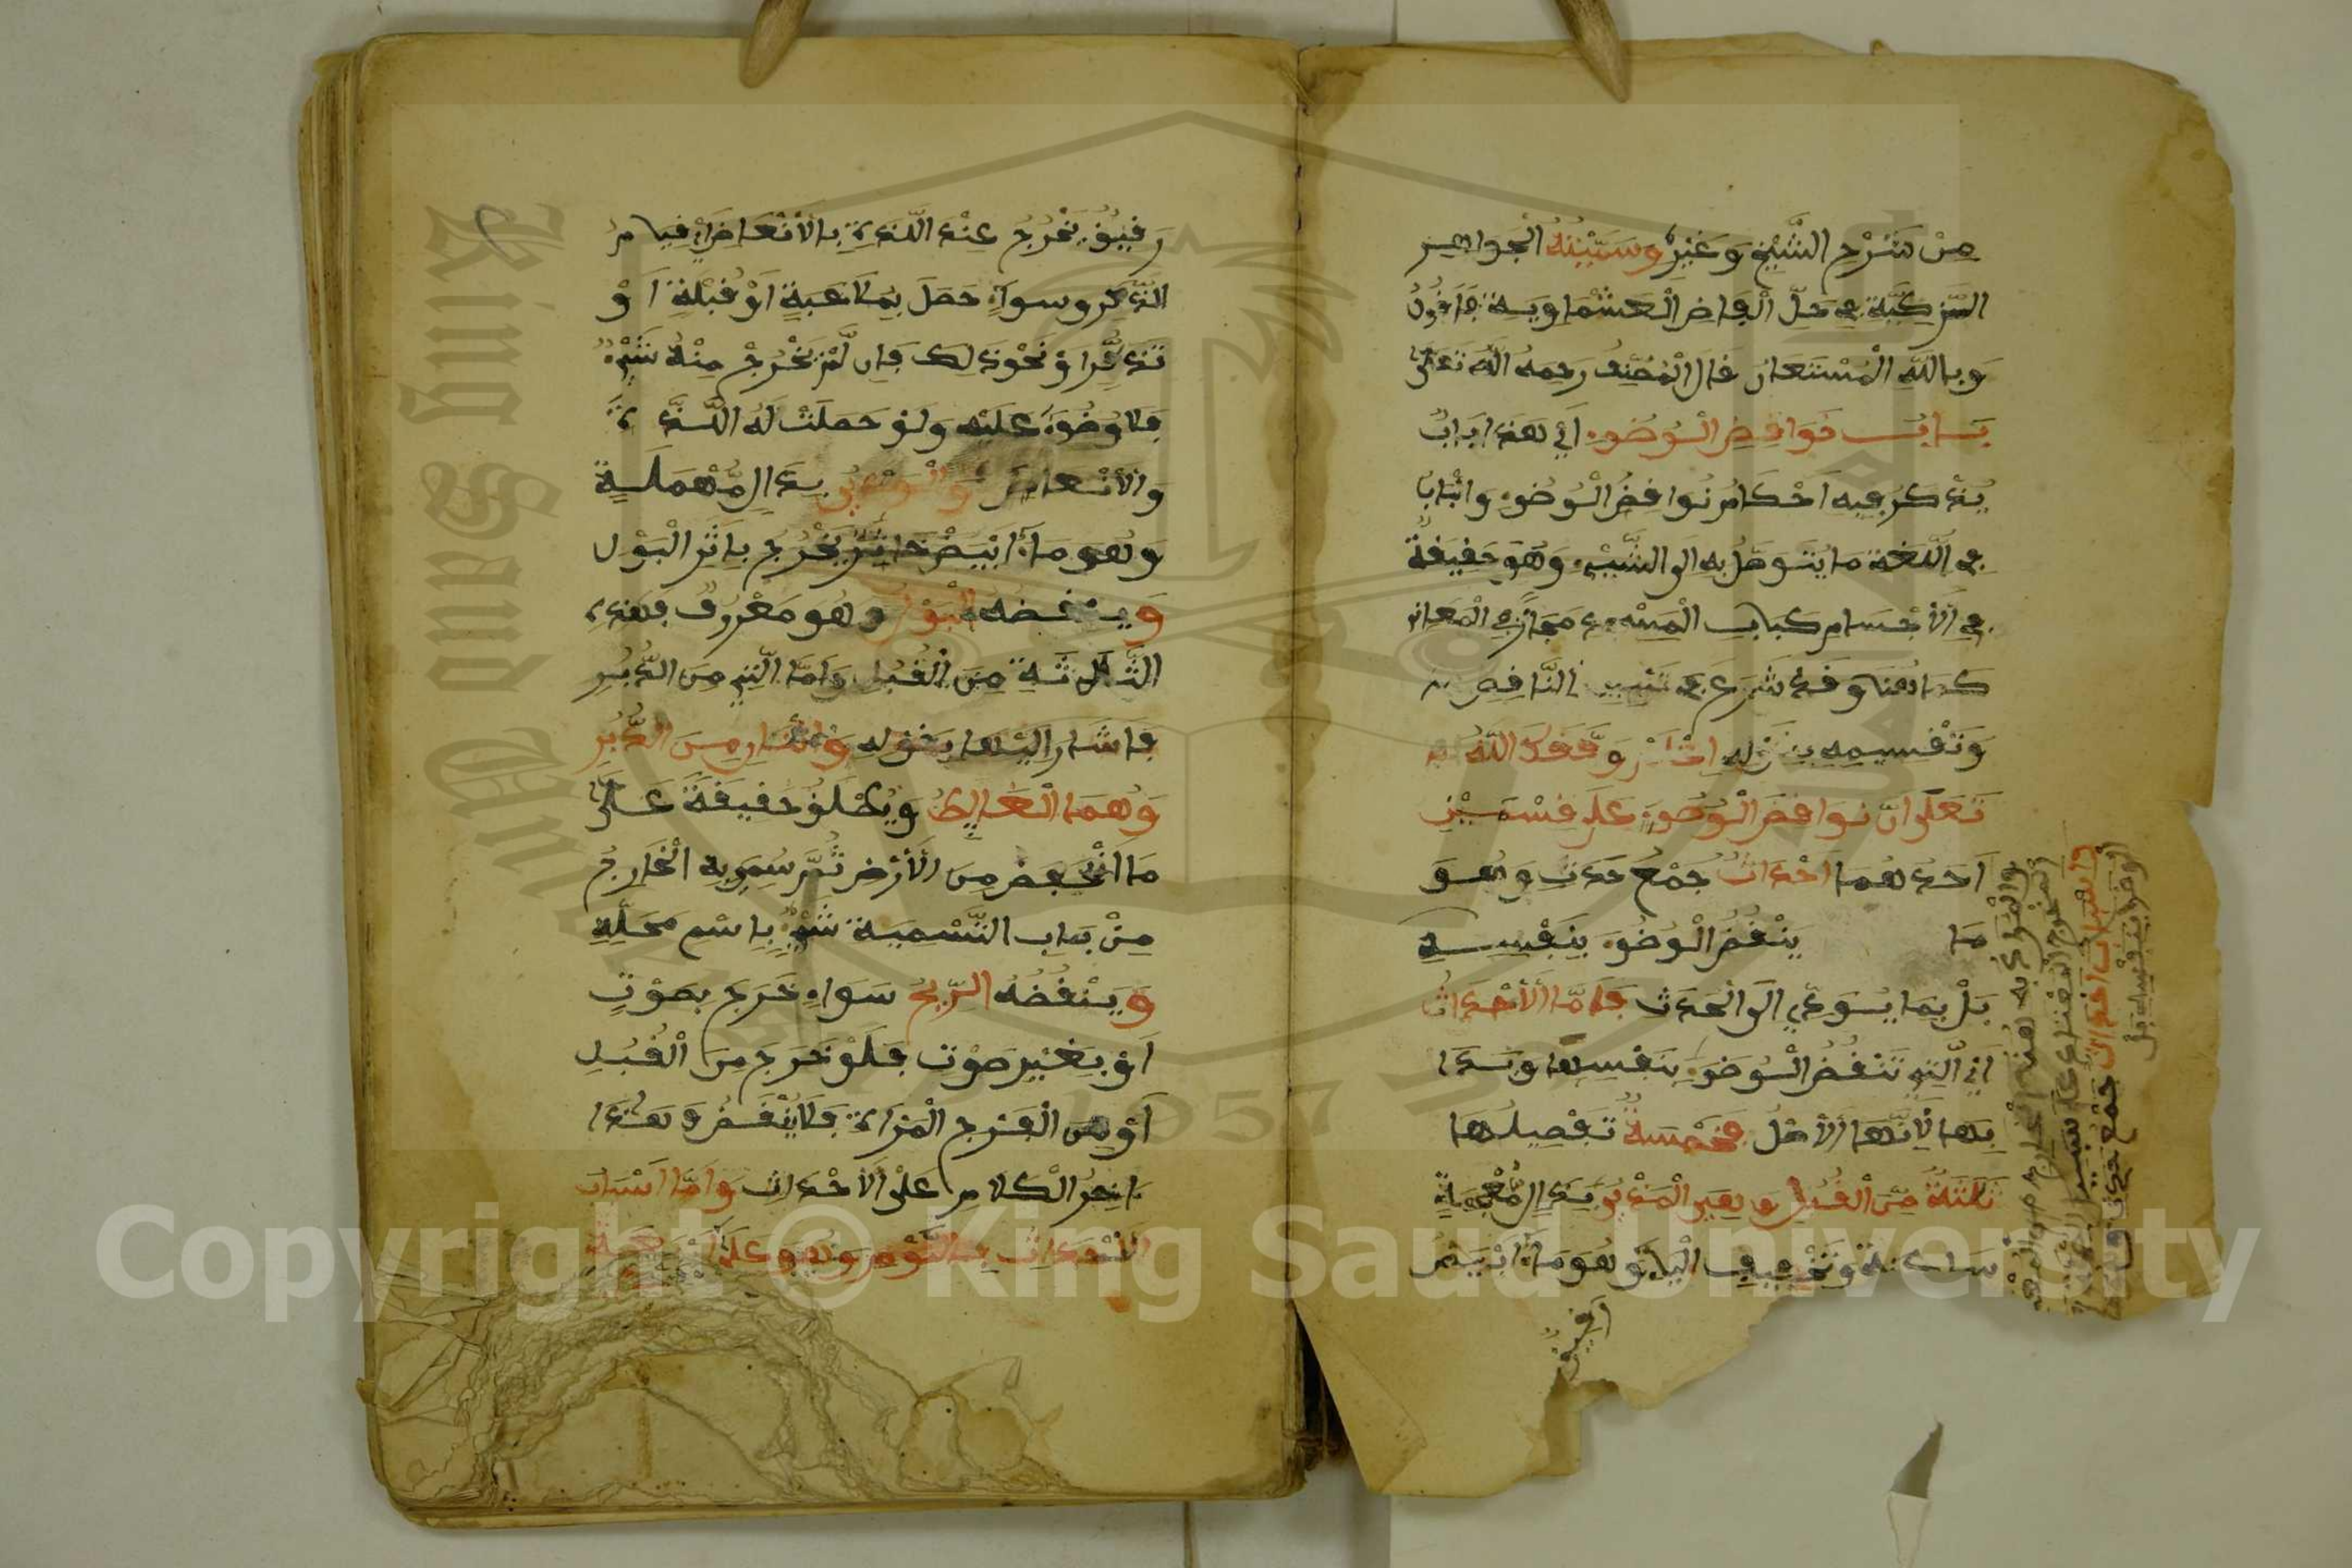 مِنْ شَرْحِ الشَّيْخِ وَغَيْرِهِ وَسَمَّيْتُهُ الْجَوَاهِر
الزكية في حل ألفاض العشماوية فأقول
وبالله المستعان قال المصنف رحمه الله تعالى
باب نواقض الوضوء أي هذا باب
يذكر فيه أحكام نواقض الوضوء والباب
في اللغة ما يتوصل به الى الشيء وهو حقيقة
في الأجسام كباب المسجد مجاز في المعاني
كما هنا وقد شرع في تبيين النافض
وتقسيمه بقوله اعلم وفقك الله
تعلى ان نواقض الوضوء على قسمين
احدهما احداث جمع حدث وهو
ما ينقض الوضوء بنفسه
بل بما يؤدي الى الحدث فاما الأحداث
أي التي تنقض الوضوء بنفسها وبدأ
بها لأنها الأصل فخمسة تفصيلها
ثلثة من القبل وهي المذي بذال معجمة
ساكنة وتخفيف الياء وهو ماء ابيض
رقيق
والمراد به هنا الخارج من
المخرج المعتاد على سبيل
واسباب احداث جمع حدث وهو
الوضوء بنفسه بل
رقيق يخرج عنه اللذة بالانعاض أي قيام
الذكر وسواء حصل بملاعبة أو قبلة او
تذكر او نحو ذلك فان لم يخرج منه شيء
فلا وضوء عليه ولو حصلت له اللذة
والأنعاض والودي بدال مهملة
وهو ماء ابيض خاثر يخرج بإثر البول
وينقضه البول وهو معروف فهذه
الثلاثة من القبل واما التي من الدبر
فاشار اليها بقوله واثنان من الدبر
وهما الغائط ويطلق حقيقة على
ما انخفض من الأرض ثم سمي به الخارج
من باب التسمية شيء باسم محله
وينقضه الريح سواء خرج بصوت
او بغير صوت فلو خرج من القبل
أو من الفرج المرأة فلا ينقض وهذا
ءاخر الكلام على الأحداث وأما اسباب
الأحداث فالنوم وهو على أربعة